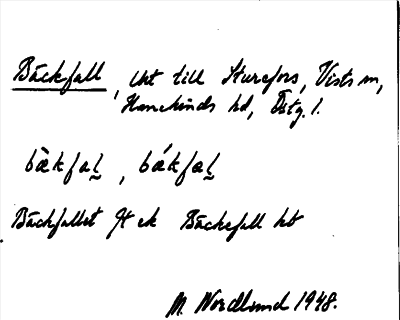 Bäckfall, uht till Sturefors, Vists sn,
Hanekinds hd, Östg. l.
bækfaḷ, bækfaḷ
Bäckfallet Jt ek Bäckefall kb
M. Nordlund 1948.